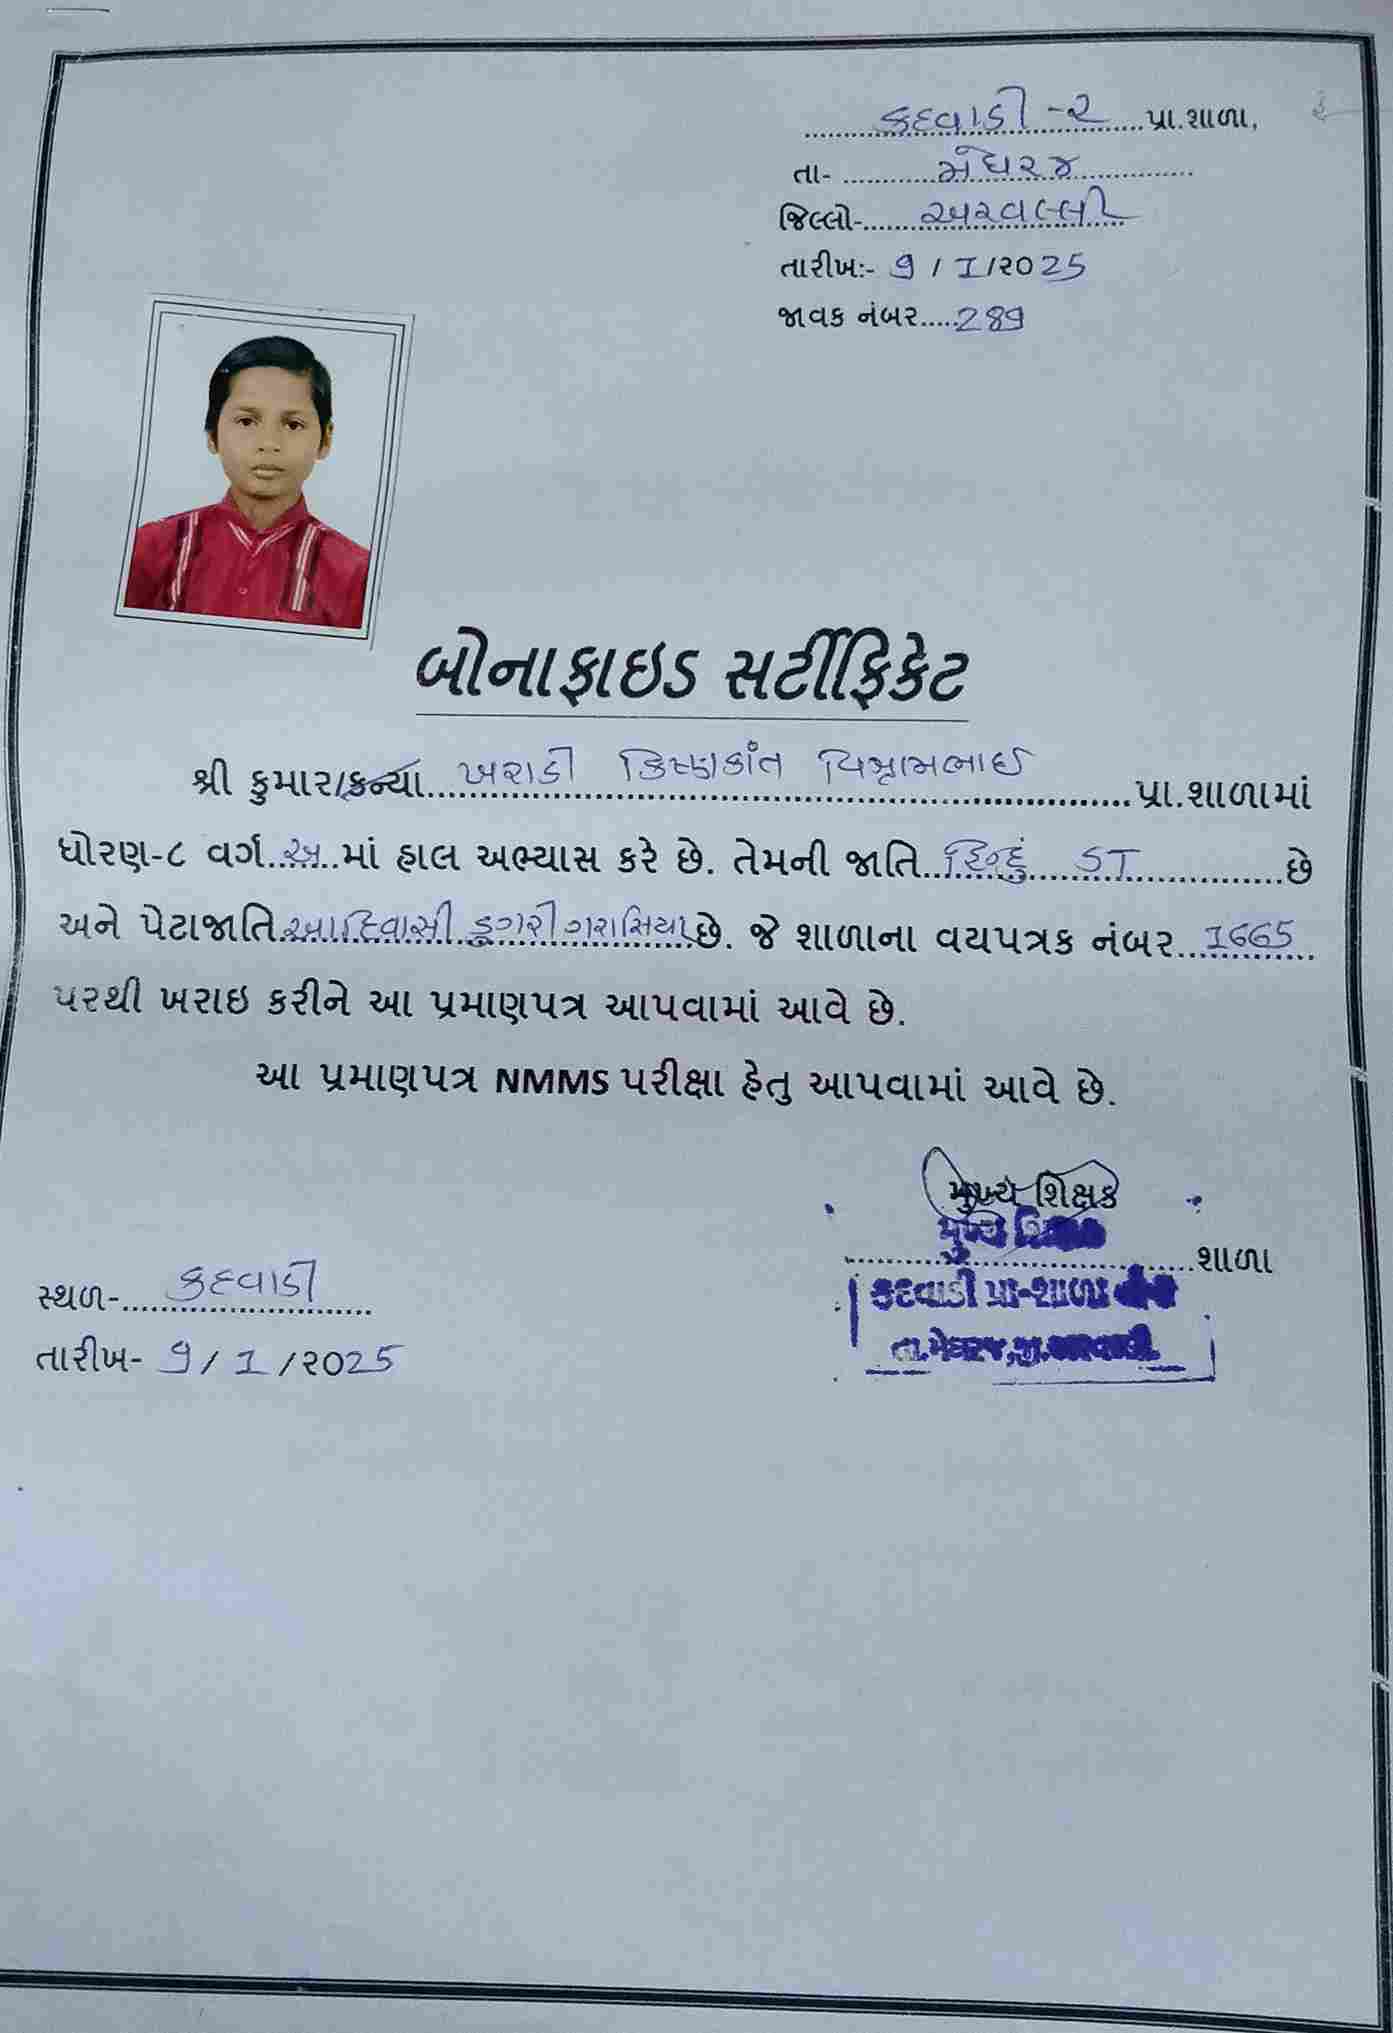 કદવાડી -૨ પ્રા.શાળા,
તા- મેઘરજ
જિલ્લો- અરવલ્લી
તારીખ:- 9 / 1 /૨૦25
જાવક નંબર.....289
બોનાફાઇડ સર્ટીફિકેટ
શ્રી કુમાર/કન્યા ખરાડી ક્રિષ્ણકાંત વિશ્રામભાઈ પ્રા.શાળામાં
ધોરણ-૮ વર્ગ અ માં હાલ અભ્યાસ કરે છે. તેમની જાતિ હિન્દુ ST છે
અને પેટાજાતિ આદિવાસી ડુંગરી ગરાસિયા છે. જે શાળાના વયપત્રક નંબર 1665
પરથી ખરાઇ કરીને આ પ્રમાણપત્ર આપવામાં આવે છે.
આ પ્રમાણપત્ર NMMS પરીક્ષા હેતુ આપવામાં આવે છે.
મુખ્ય શિક્ષક
શાળા
કદવાડી પ્રા-શાળા
તા.મેઘરજ,જી.અરવલ્લી.
સ્થળ- કદવાડી
તારીખ- 9 / 1 /૨૦25